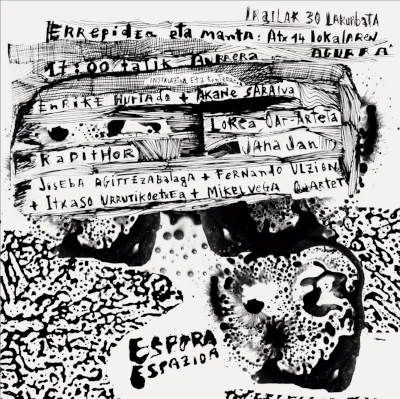 IRAILAK 30 LARUNBATA
ERREPIDEA Eta MANTA: Atx 14 LOKALAREN
AGURRA
17:00 tatik AURRERA
INSTALAZIOA Eta
ENRIKE HURTADO + AKANE SARAIVA
LOREA OAR-ARTETA
KADITHOR
JANA JAN
JOSEBA AGIRREZABALAGA + FERNANDO ULZION
+ ITXASO URRUTIKOETXEA + MIKEL VEGA QUARTET
ESPORA
ESPAZIOA